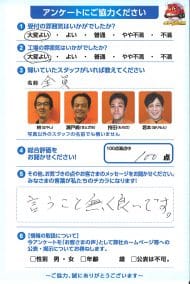 アンケートにご協力ください
1 受付の雰囲気はいかがでしたか?
大変よい ・ よい ・ 普通 ・ やや不満 ・ 不満
2 工場の雰囲気はいかがでしたか?
大変よい ・ よい ・ 普通 ・ やや不満 ・ 不満
3 輝いていたスタッフがいれば教えてください
名前 全員
写真以外のスタッフの名前でも構いません
4 総合評価を
お聞かせください!
100点満点中
100 点
5 その他、お気づきの点やお客さまのメッセージをお聞かせください。
みなさまの言葉が私たちのチカラになります!
言うこと無く良いです。
6 【情報の転記について】
今アンケートを「お客さまの声」として弊社ホームページ等への
公表・掲示についてお尋ねします。
□性別 男・女 □年齢 歳 □公表は不可。
～ご協力、誠にありがとうございます～